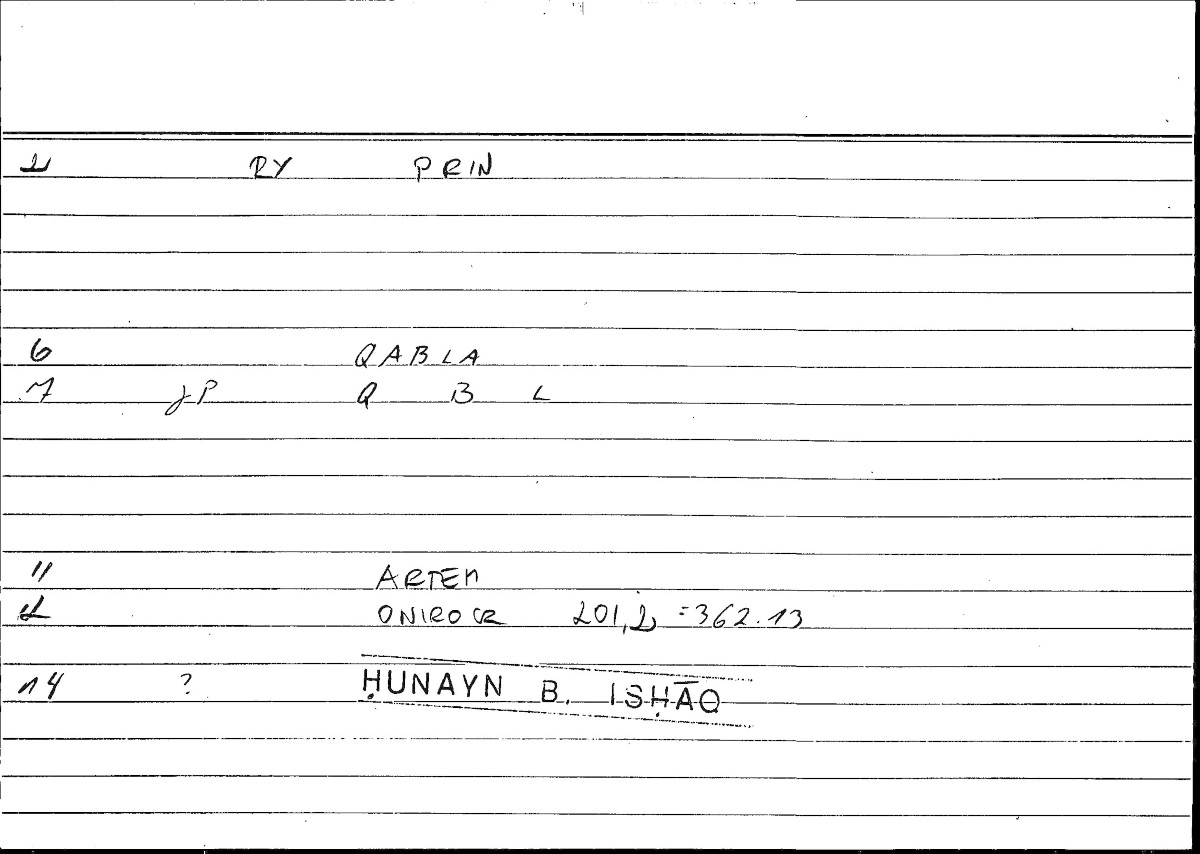 1 RY PRIN
6 QABLA
7 JP Q B L
11 ARTEM
12 ONIROCR 201,2 = 362.13
14 ? ḤUNAYN B. ISḤĀQ